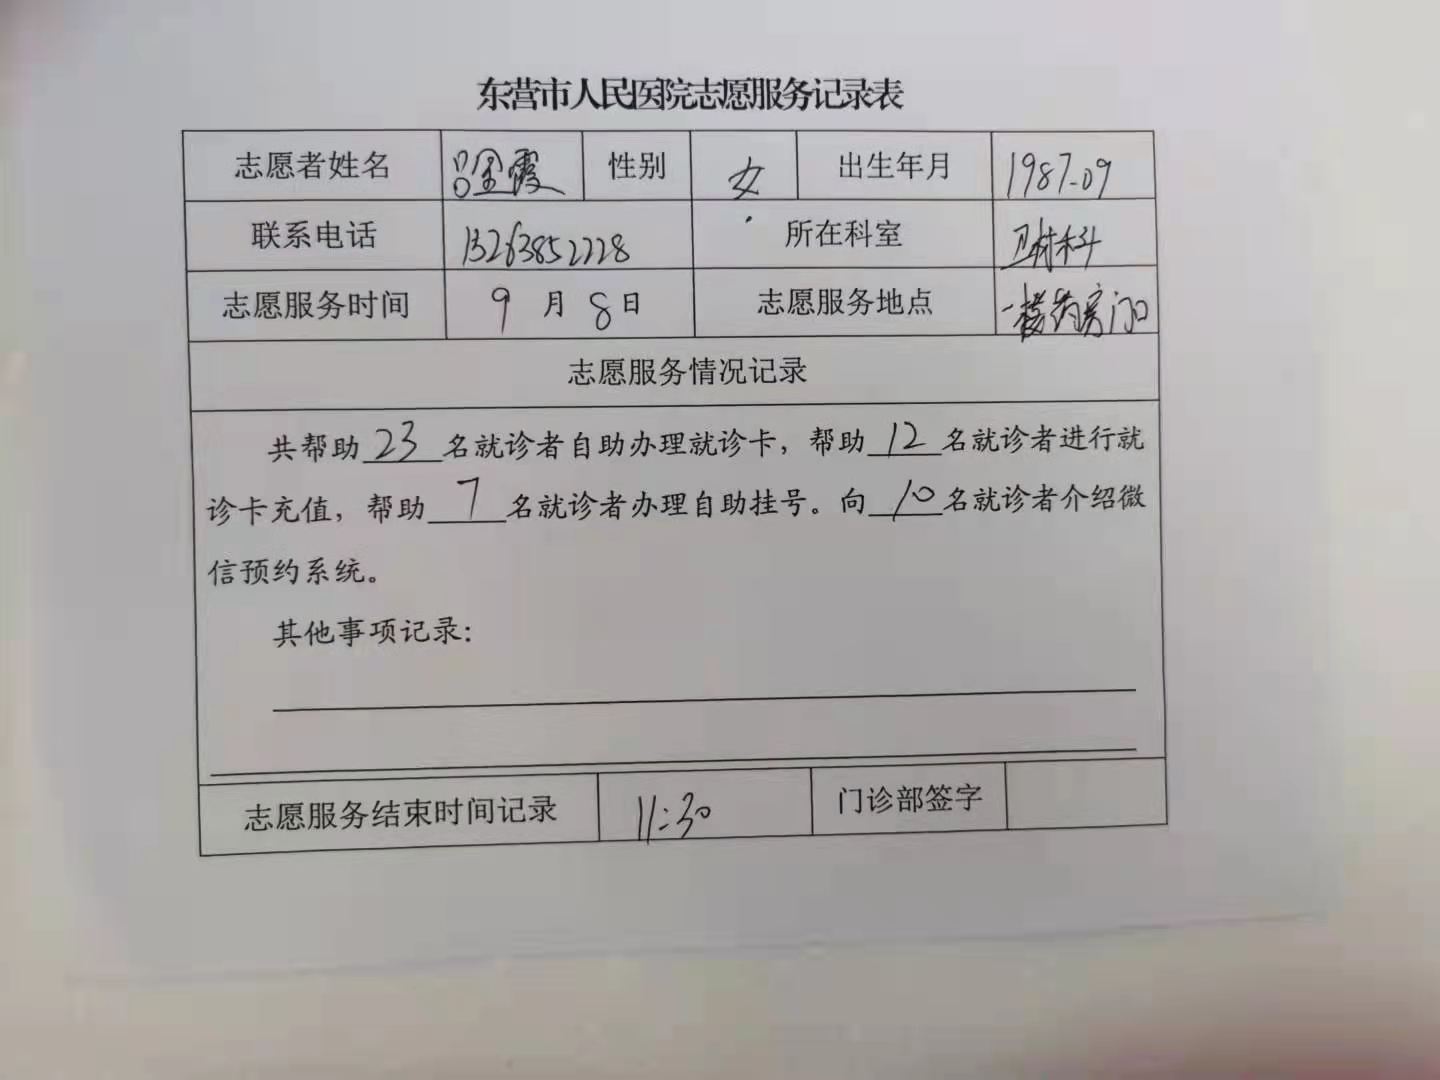 东营市人民医院志愿服务记录表
志愿者姓名 吕金霞 性别 女 出生年月 1987.09
联系电话 13263852228 所在科室 卫材科
志愿服务时间 9月8日 志愿服务地点 一楼药房门口
志愿服务情况记录
共帮助23名就诊者自助办理就诊卡，帮助12名就诊者进行就
诊卡充值，帮助7名就诊者办理自助挂号。向10名就诊者介绍微
信预约系统。
其他事项记录：
志愿服务结束时间记录 11:30 门诊部签字